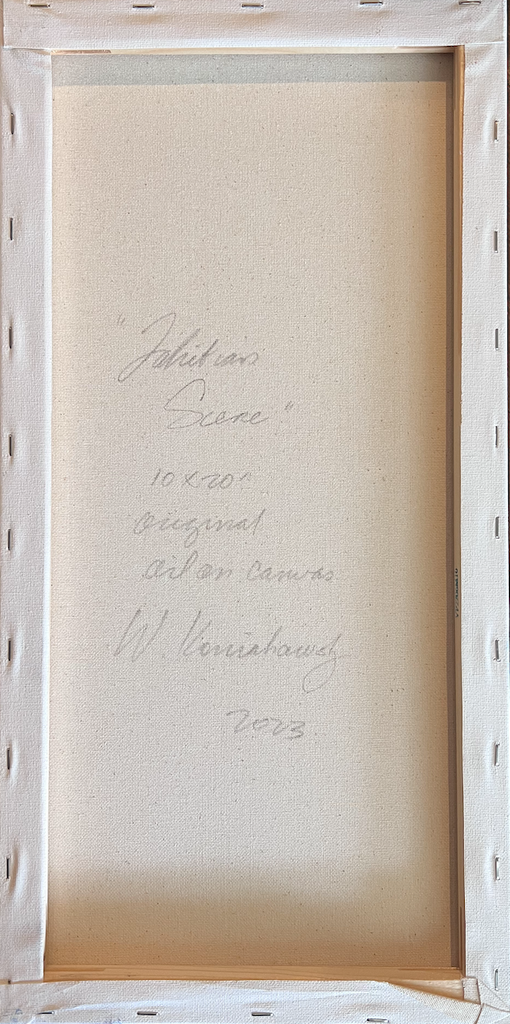 "Tahitian
Scene"
10x20"
original
oil on canvas
W.
2023